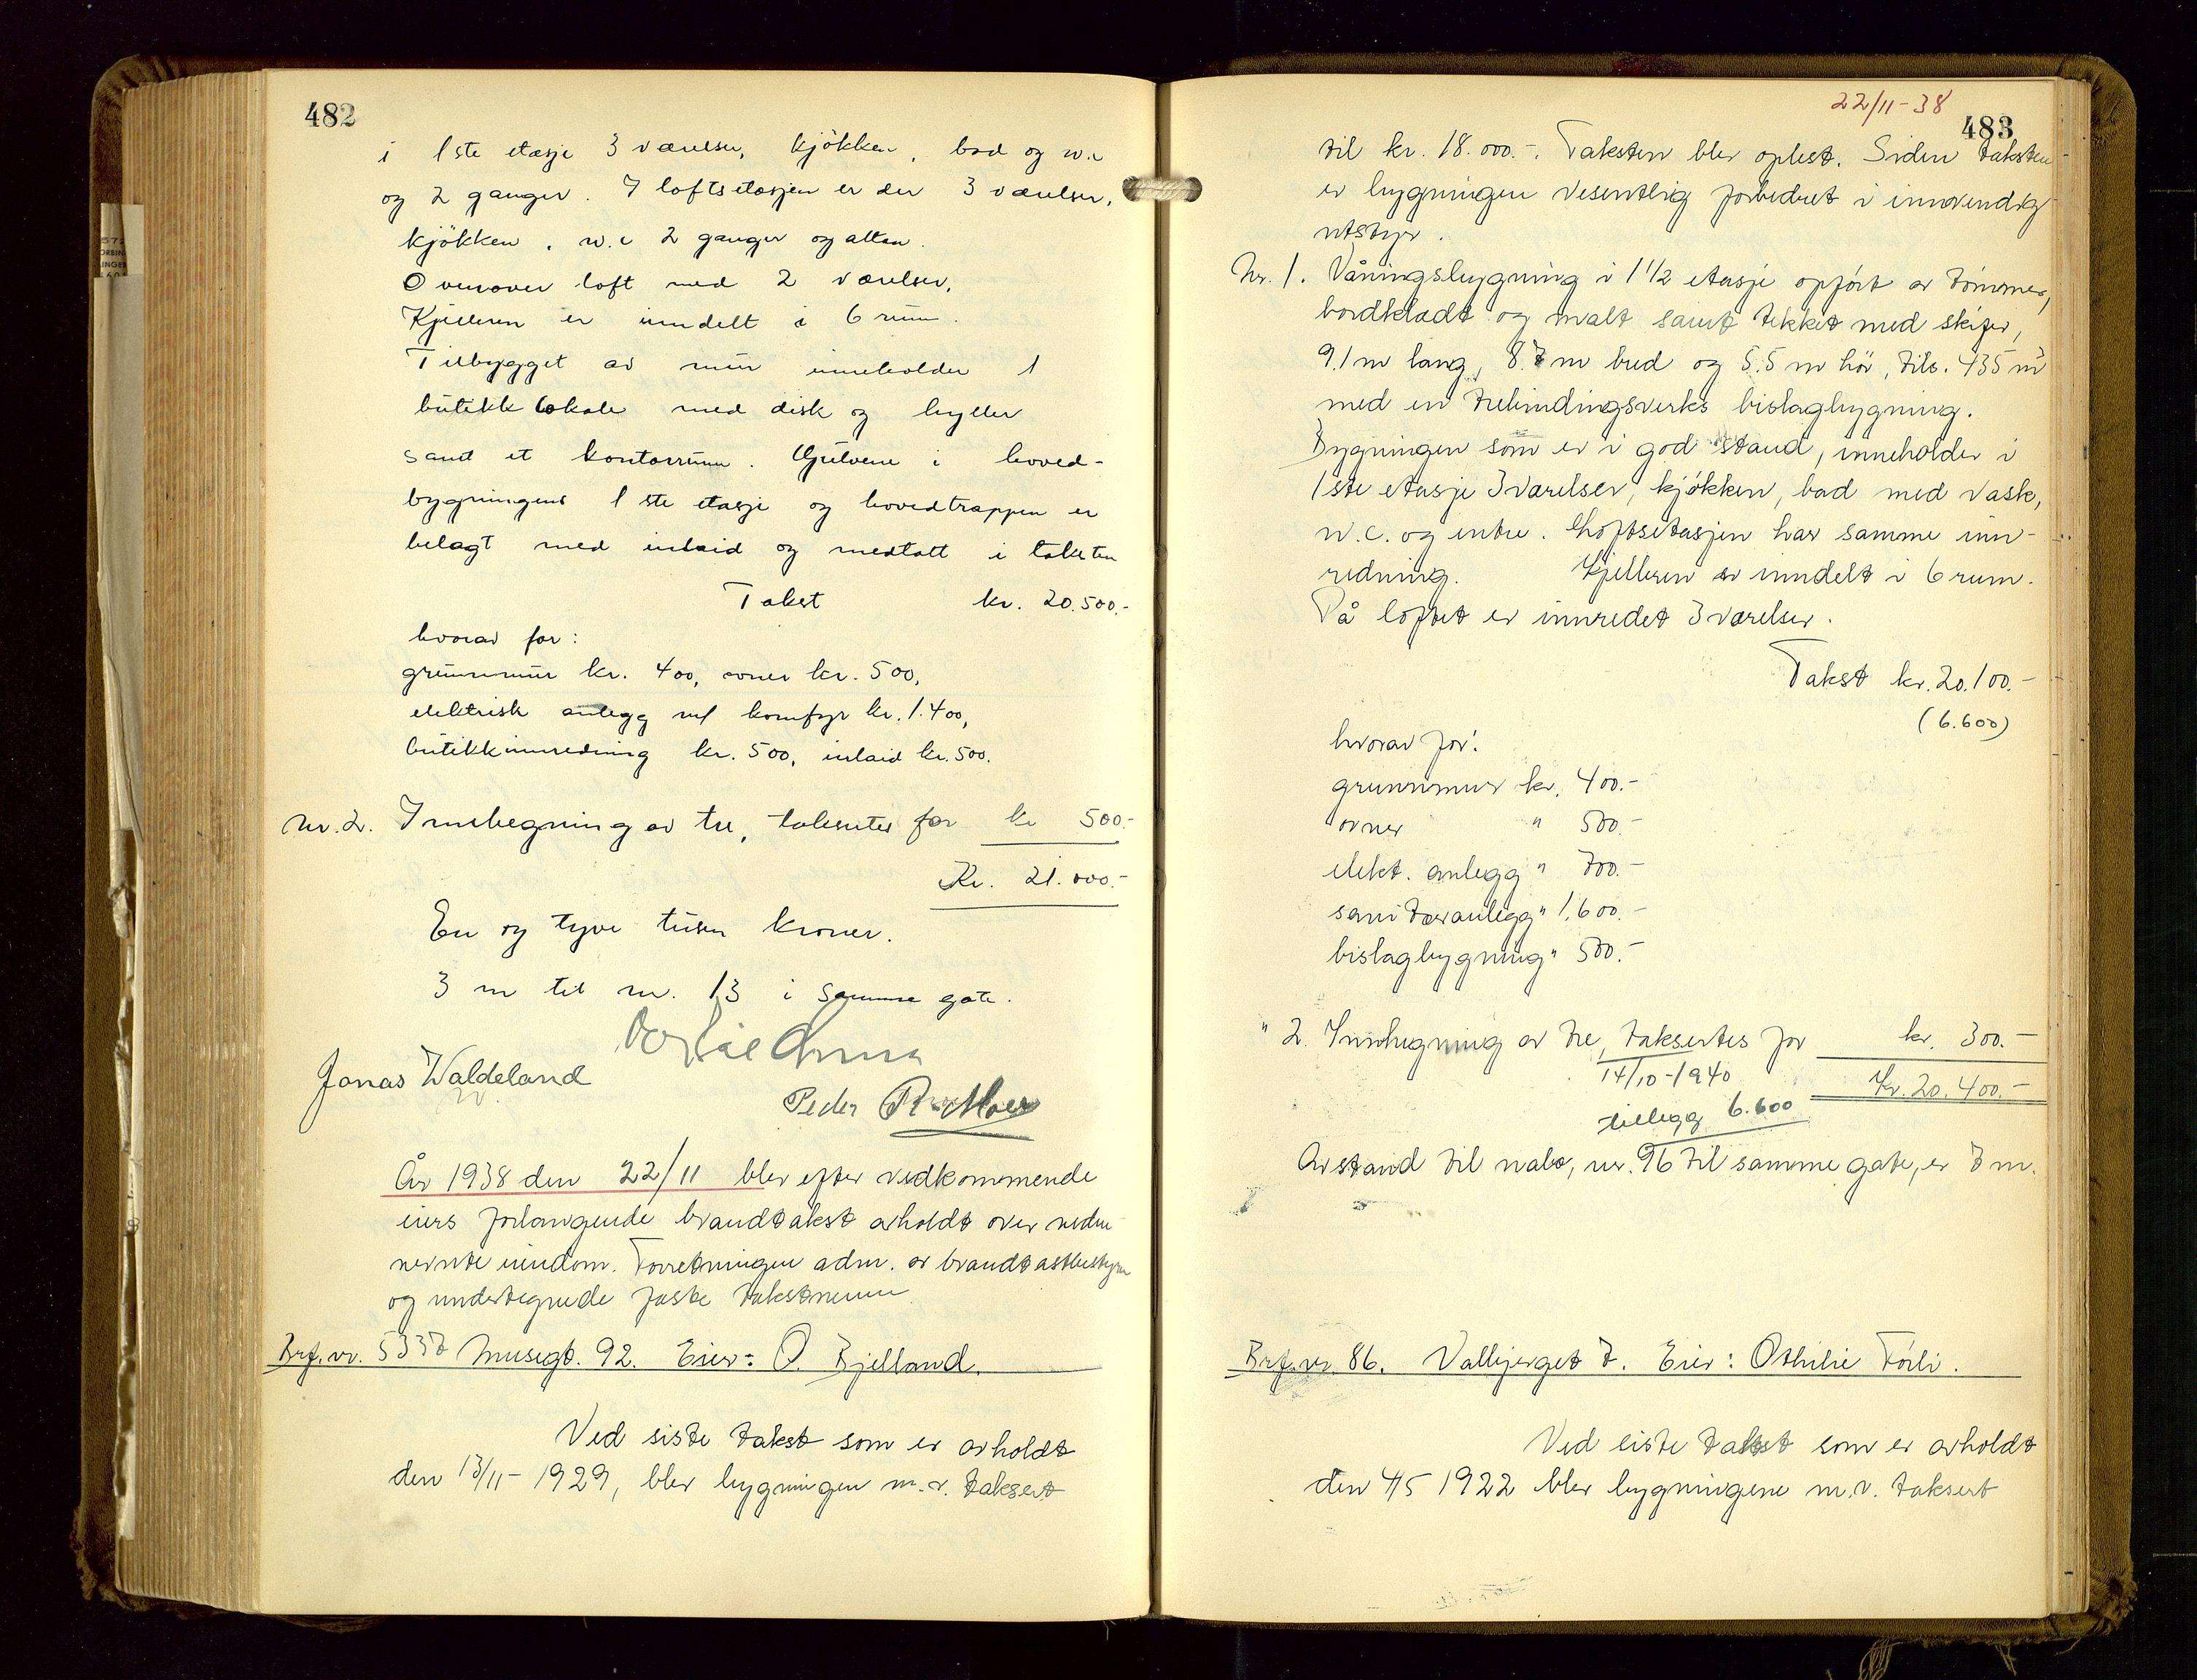 482
i 1ste etasje 3 værelser, kjökken, bad og w.c
og 2 ganger. I loftsetasjen er der 3 værelser,
kjökken, w.c 2 ganger og altan.
Ovenover loft med 2 værelser.
Kjelleren er inndelt i 6 rum.
Tilbygget av mur inneholder 1
butikklokale med disk og hyller
samt et kontorrum. Gulvene i hoved-
bygningens 1ste etasje og hovedtrappen er
belagt med inlaid og medtatt i taksten
Takst kr. 20.500.-
hvorav for:
grunnmur kr. 400, ovner kr. 500,
elektrisk anlegg m/ komfyr kr. 1.400,
butikkinnredning kr. 500, inlaid kr. 500.
Nr. 2. Innhegning av tre, takseres for kr 500.-
Kr. 21.000.-
En og tyve tusen kroner.
3 m til nr. 13 i samme gate.
Jonas Waldeland
Peder
År 1938 den 22/11 blev efter vedkommende
eiers forlangende brandtakst avholdt over neden-
nevnte eiendom. Forretningen adm. av brandtastbestyrer
og undertegnede faste takstmenn
Brf. nr. 5337 Musegt. 92. Eier: O. Bjelland.
Ved siste takst som er avholdt
den 13/11-1929, blev bygningen m.v. taksert
22/11-38
483
til kr. 18.000.-. Taksten blev oplest. Siden taksten
er bygningen vesentlig forbedret i innvendig
utstyr.
Nr. 1. Våningsbygning i 1 1/2 etasje opført av tømmer,
bordklædt og malt samt tekket med skifer,
9.1 m lang, 8.7 m bred og 5.5 m høi, tils. 435 m³
med en trebindingsverks bislagbygning.
Bygningen som er i god stand, inneholder i
1ste etasje 3 værelser, kjøkken, bad med vask,
w.c. og entre. Loftsetasjen har samme inn-
redning. Kjelleren er inndelt i 6 rum.
På loftet er innredet 3 værelser.
Takst kr. 20.100.-
(6.600)
hvorav for:
grunnmur kr. 400.-
ovner " 500.-
elekt. anlegg " 700.-
sanitæranlegg " 1.600.-
bislagbygning " 500.-
" 2. Innhegning av tre, taksertes for kr. 300.-
14/10-1940
Kr. 20.400.-
tillegg 6.600
Avstand til nabo, nr. 96 til samme gate, er 7 m.
Brf. nr. 86. Vallbjerget 7. Eier: Othilie Förli.
Ved siste takst som er avholdt
den 4/5 1922 blev bygningene m.v. taksert